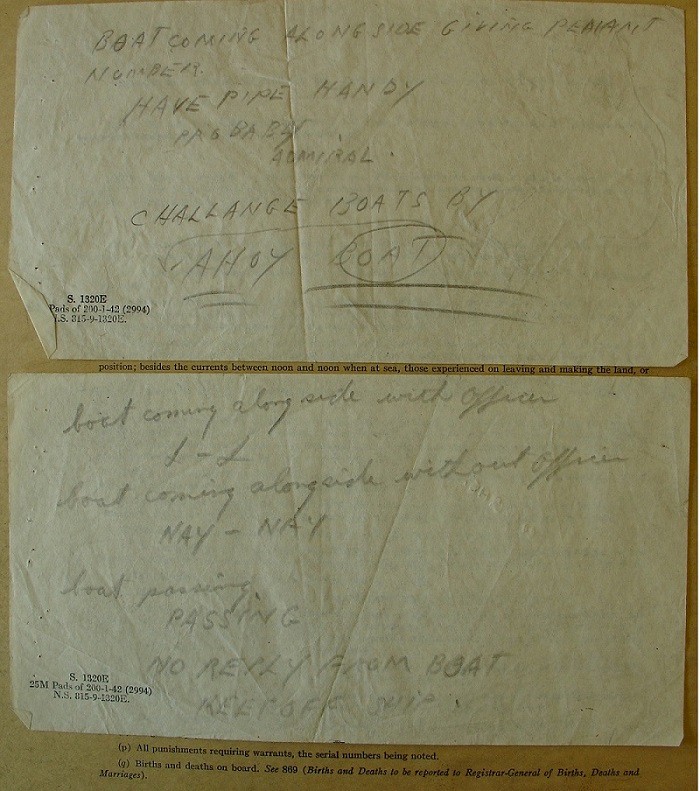 BOAT COMING ALONGSIDE GIVING PENANT
NUMBER.
HAVE PIPE HANDY
PROBABLY
ADMIRAL.
CHALLANGE BOATS BY
AHOY BOAT
S. 1320E
Pads of 200-1-42 (2994)
N.S. 815-9-1320E.
position; besides the currents between noon and noon when at sea, those experienced on leaving and making the land, or
boat coming along side with Officer
boat coming alongside without Officer
NAY - NAY
boat passing
PASSING
NO REPLY FROM BOAT
KEEP OFF SHIP.
S. 1320E
25M Pads of 200-1-42 (2994)
N.S. 815-9-1320E.
(p) All punishments requiring warrants, the serial numbers being noted.
(q) Births and deaths on board. See 869 (Births and Deaths to be reported to Registrar-General of Births, Deaths and
Marriages).